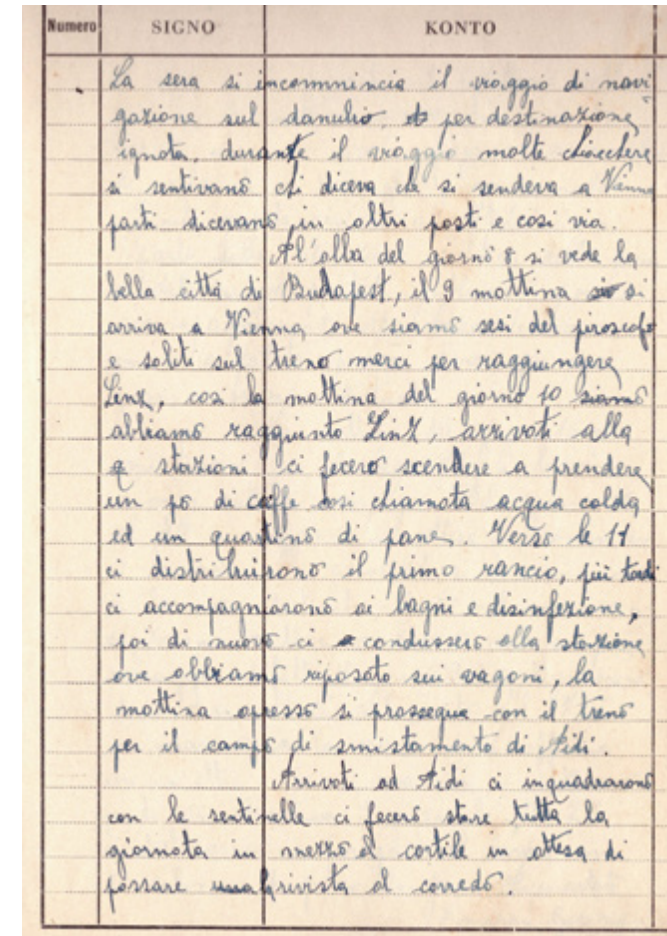 Numero SIGNO KONTO
La sera si incommincia il viaggio di navi
gazione sul danubio, per destinazione
ignota. durante il viaggio molte chiacchere
si sentivano chi diceva che si sendeva a Vienna
parti dicevano, in altri posti e cosi via.
Al'alba del giorno 8 si vede la
bella città di Budapest, il 9 mattina si
arriva a Vienna ove siamo sesi del piroscafo
e saliti sul treno merci per raggiungere
Linz, cosi la mattina del giorno 10 siamo
abbiamo raggiunto Linz, arrivati alla
stazioni ci fecero scendere a prendere
un pò di caffe cosi chiamata acqua calda
ed un quartino di pane. Verso le 11
ci distribuirono il primo rancio, più tardi
ci accompagniarono ai bagni e disinfezione,
poi di nuovo ci condussero alla stazione
ove abbiamo riposato sui vagoni, la
mattina apresso si prossegua con il treno
per il campo di smistamento di Aidi.
Arrivati ad Aidi ci inquadrarono
con le sentinelle ci fecero stare tutta la
giornata in mezzo al cortile in attesa di
passare la rivista al corredo.